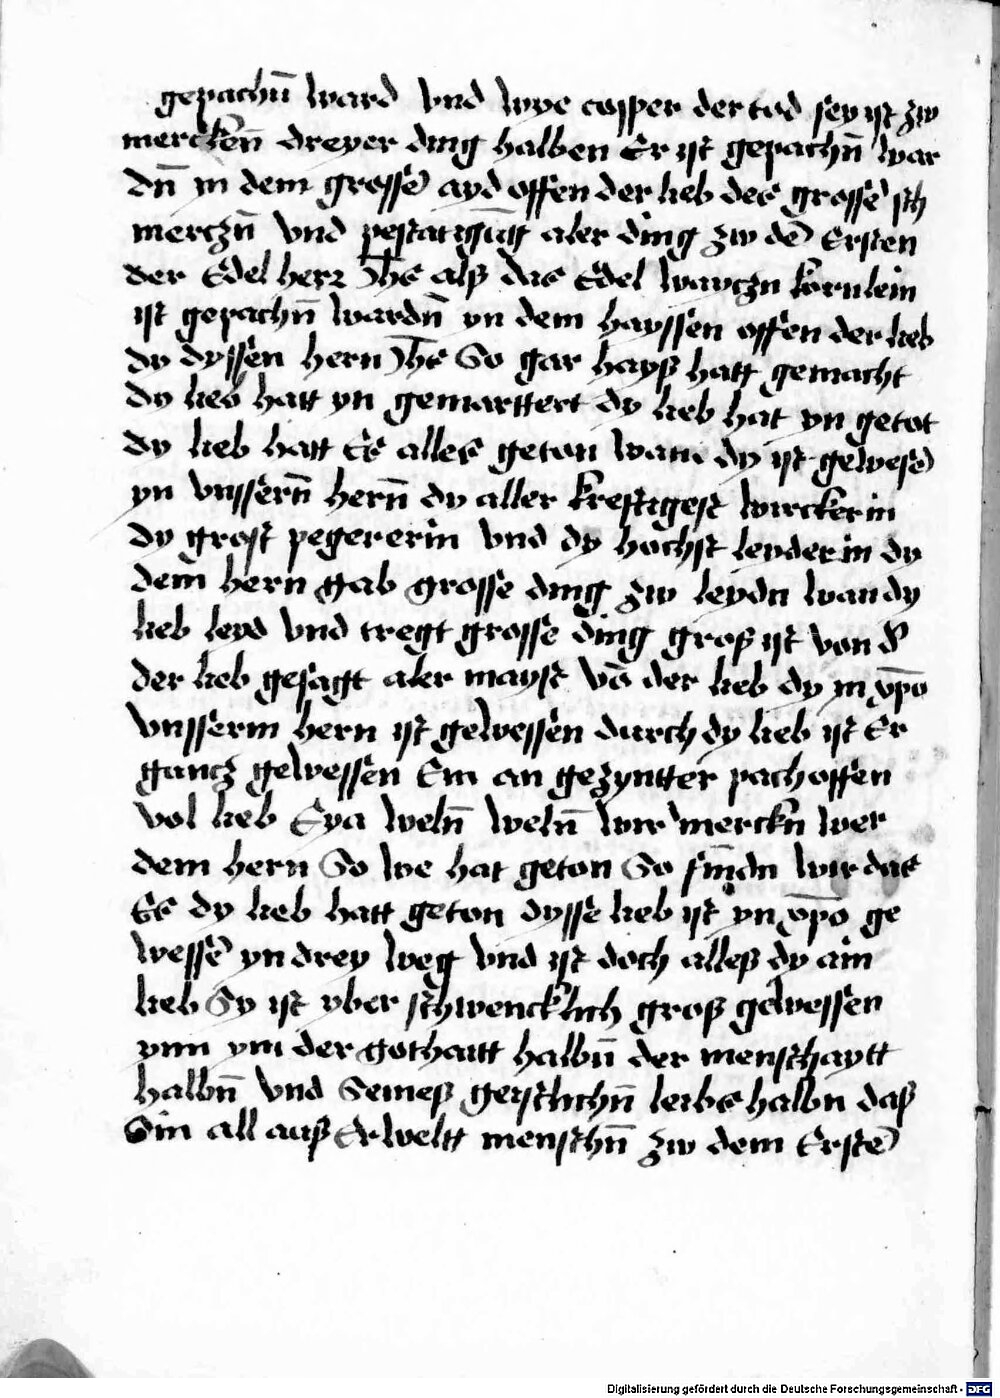 gepachn̄ ward vnd wye cosper der tod sey ist zw
mercken̄ dreyer ding halben Er ist gepachn̄ war
dn̄ in dem grosse͂ ayd offen der lieb des grosse͂ sch
merczn̄ vnd pestatigūg aler ding zw de͂ Ersten
der Edel herr Jh̄s alß das Edel wayczn kornlein
ist gepachn̄ wardn̄ yn dem hayssen offen der lieb
dy dyssen hern Jh̄s So gar hayß hatt gemacht
dy lieb hatt yn gemarttert dy lieb hat yn getot
dy lieb hatt Es alles geton wann dy ist gewese͂
yn vnssern̄ hern̄ dy aller kreftigest wirckerin
dy grost pegererin vnd dy hochst leyderin dy
dem hern gab grosse ding zw leydn wan dy
lieb leyd vnd tregt grosse ding groß ist von d᾽
der lieb gesagt aler mayst vō der lieb dy in xp̄o
vnsserm hern ist gewessen durch dy lieb ist Er
gancz gewessen Ein an gezyntter pachoffen
vol lieb Eya weln̄ weln̄ wir merckn wer
dem hern So we hat geton So findn wir das
Es dy lieb hatt geton dysse lieb ist yn xp̄o ge
wesse͂ yn drey weg vnd ist doch alleß dy ain
lieb Sy ist vber schwencklich groß gewessen
ynn ym der gothaitt halbn̄ der menschaytt
halbn̄ vnd Seineß geistlichn̄ leibs halbn daß
Sin all auß Erweltt menschn̄ zw dem Erste͂
Digitalisierung gefördert durch die Deutsche Forschungsgemeinschaft - DFG